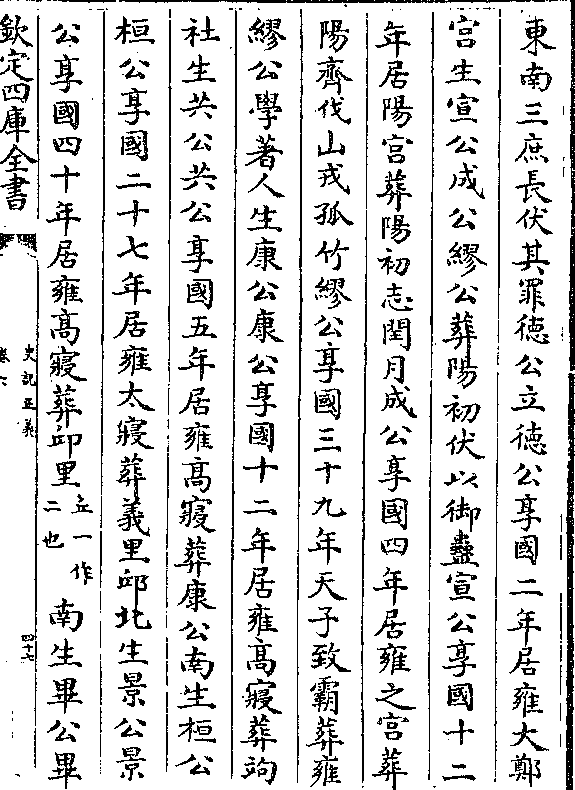 東南三庶長伏其罪德公立德公享國二年居雍大鄭
宫生宣公成公繆公葬陽初伏以御蠱宣公享國十二
年居陽宫葬陽初志閏月成公享國四年居雍之宫葬
陽齊伐山戎孤竹繆公享國三十九年天子致霸葬雍
繆公學著人生康公康公享國十二年居雍髙寢葬竘
社生共公共公享國五年居雍髙寢葬康公南生桓公
桓公享國二十七年居雍太寢葬義里邱北生景公景
公享國四十年居雍髙寢葬邱里丘一作二也南生畢公畢
欽定四庫全書
史記正義
卷六
四十七